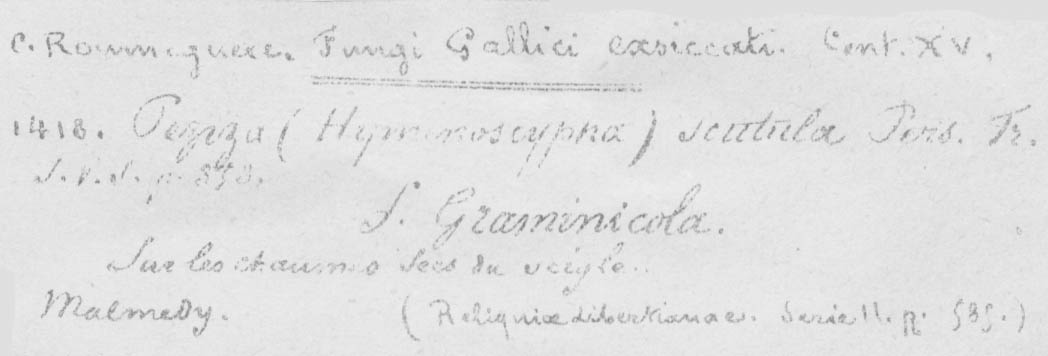 C. Roumeguere. Fungi Gallici exsiccati. Cent. XV.
1418. Peziza (Hyminoscypha) scutula Pers. Fr.
S. V. S. p.
f. Graminicola.
Sur les chaumes secs du seigle.
Malmedy. (Reliquiæ Libertianae. Serie II.